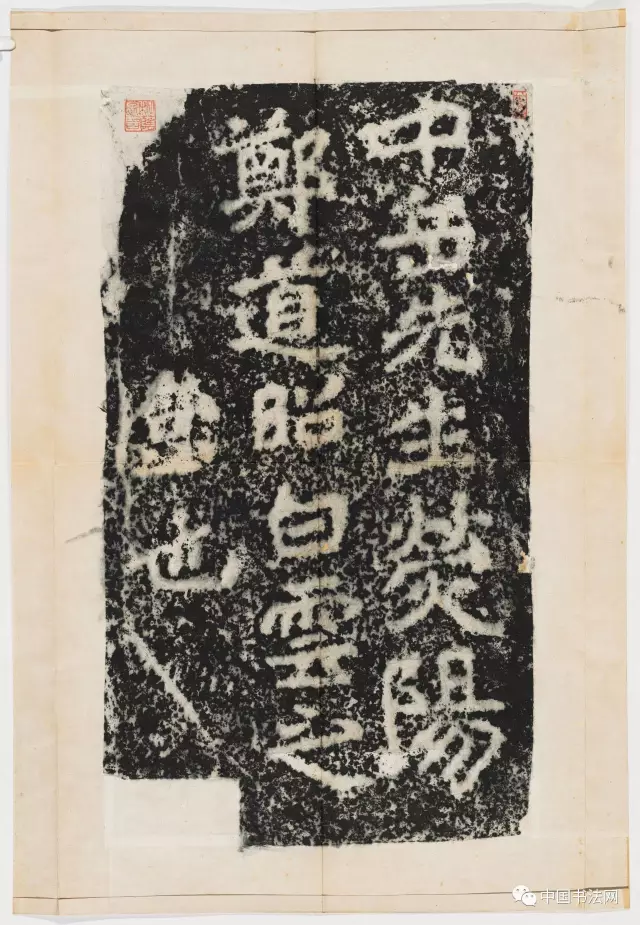 中岳先生熒陽
鄭道昭白雲之
堂也
中国书法网